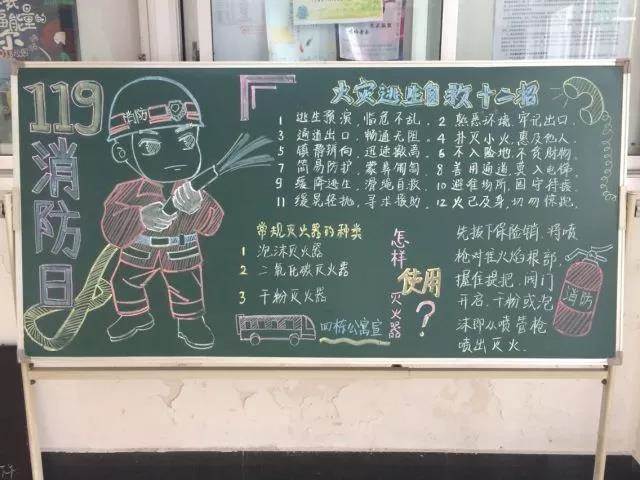 119
消防日
消防
火灾逃生自救十二招
1 逃生预演，临危不乱. 2 熟悉环境，牢记出口.
3 通道出口，畅通无阻. 4 扑灭小火，惠及他人.
5 镇静辨向，迅速撤离. 6 不入险地，不贪财物.
7 简易防护，蒙鼻匍匐. 8 善用通道，莫入电梯.
9 缓降逃生，滑绳自救. 10 避难场所，固守待援
11 缓晃轻抛，寻求援助. 12 火已及身，切勿惊跑.
常规灭火器的种类
1 泡沫灭火器
2 二氧化碳灭火器
3 干粉灭火器
四栋公寓宣
怎样使用灭火器？
先拔下保险销.将喷
枪对准火焰根部
握住提把.阀门
开启.干粉或泡
沫即从喷管枪
喷出灭火.
消防